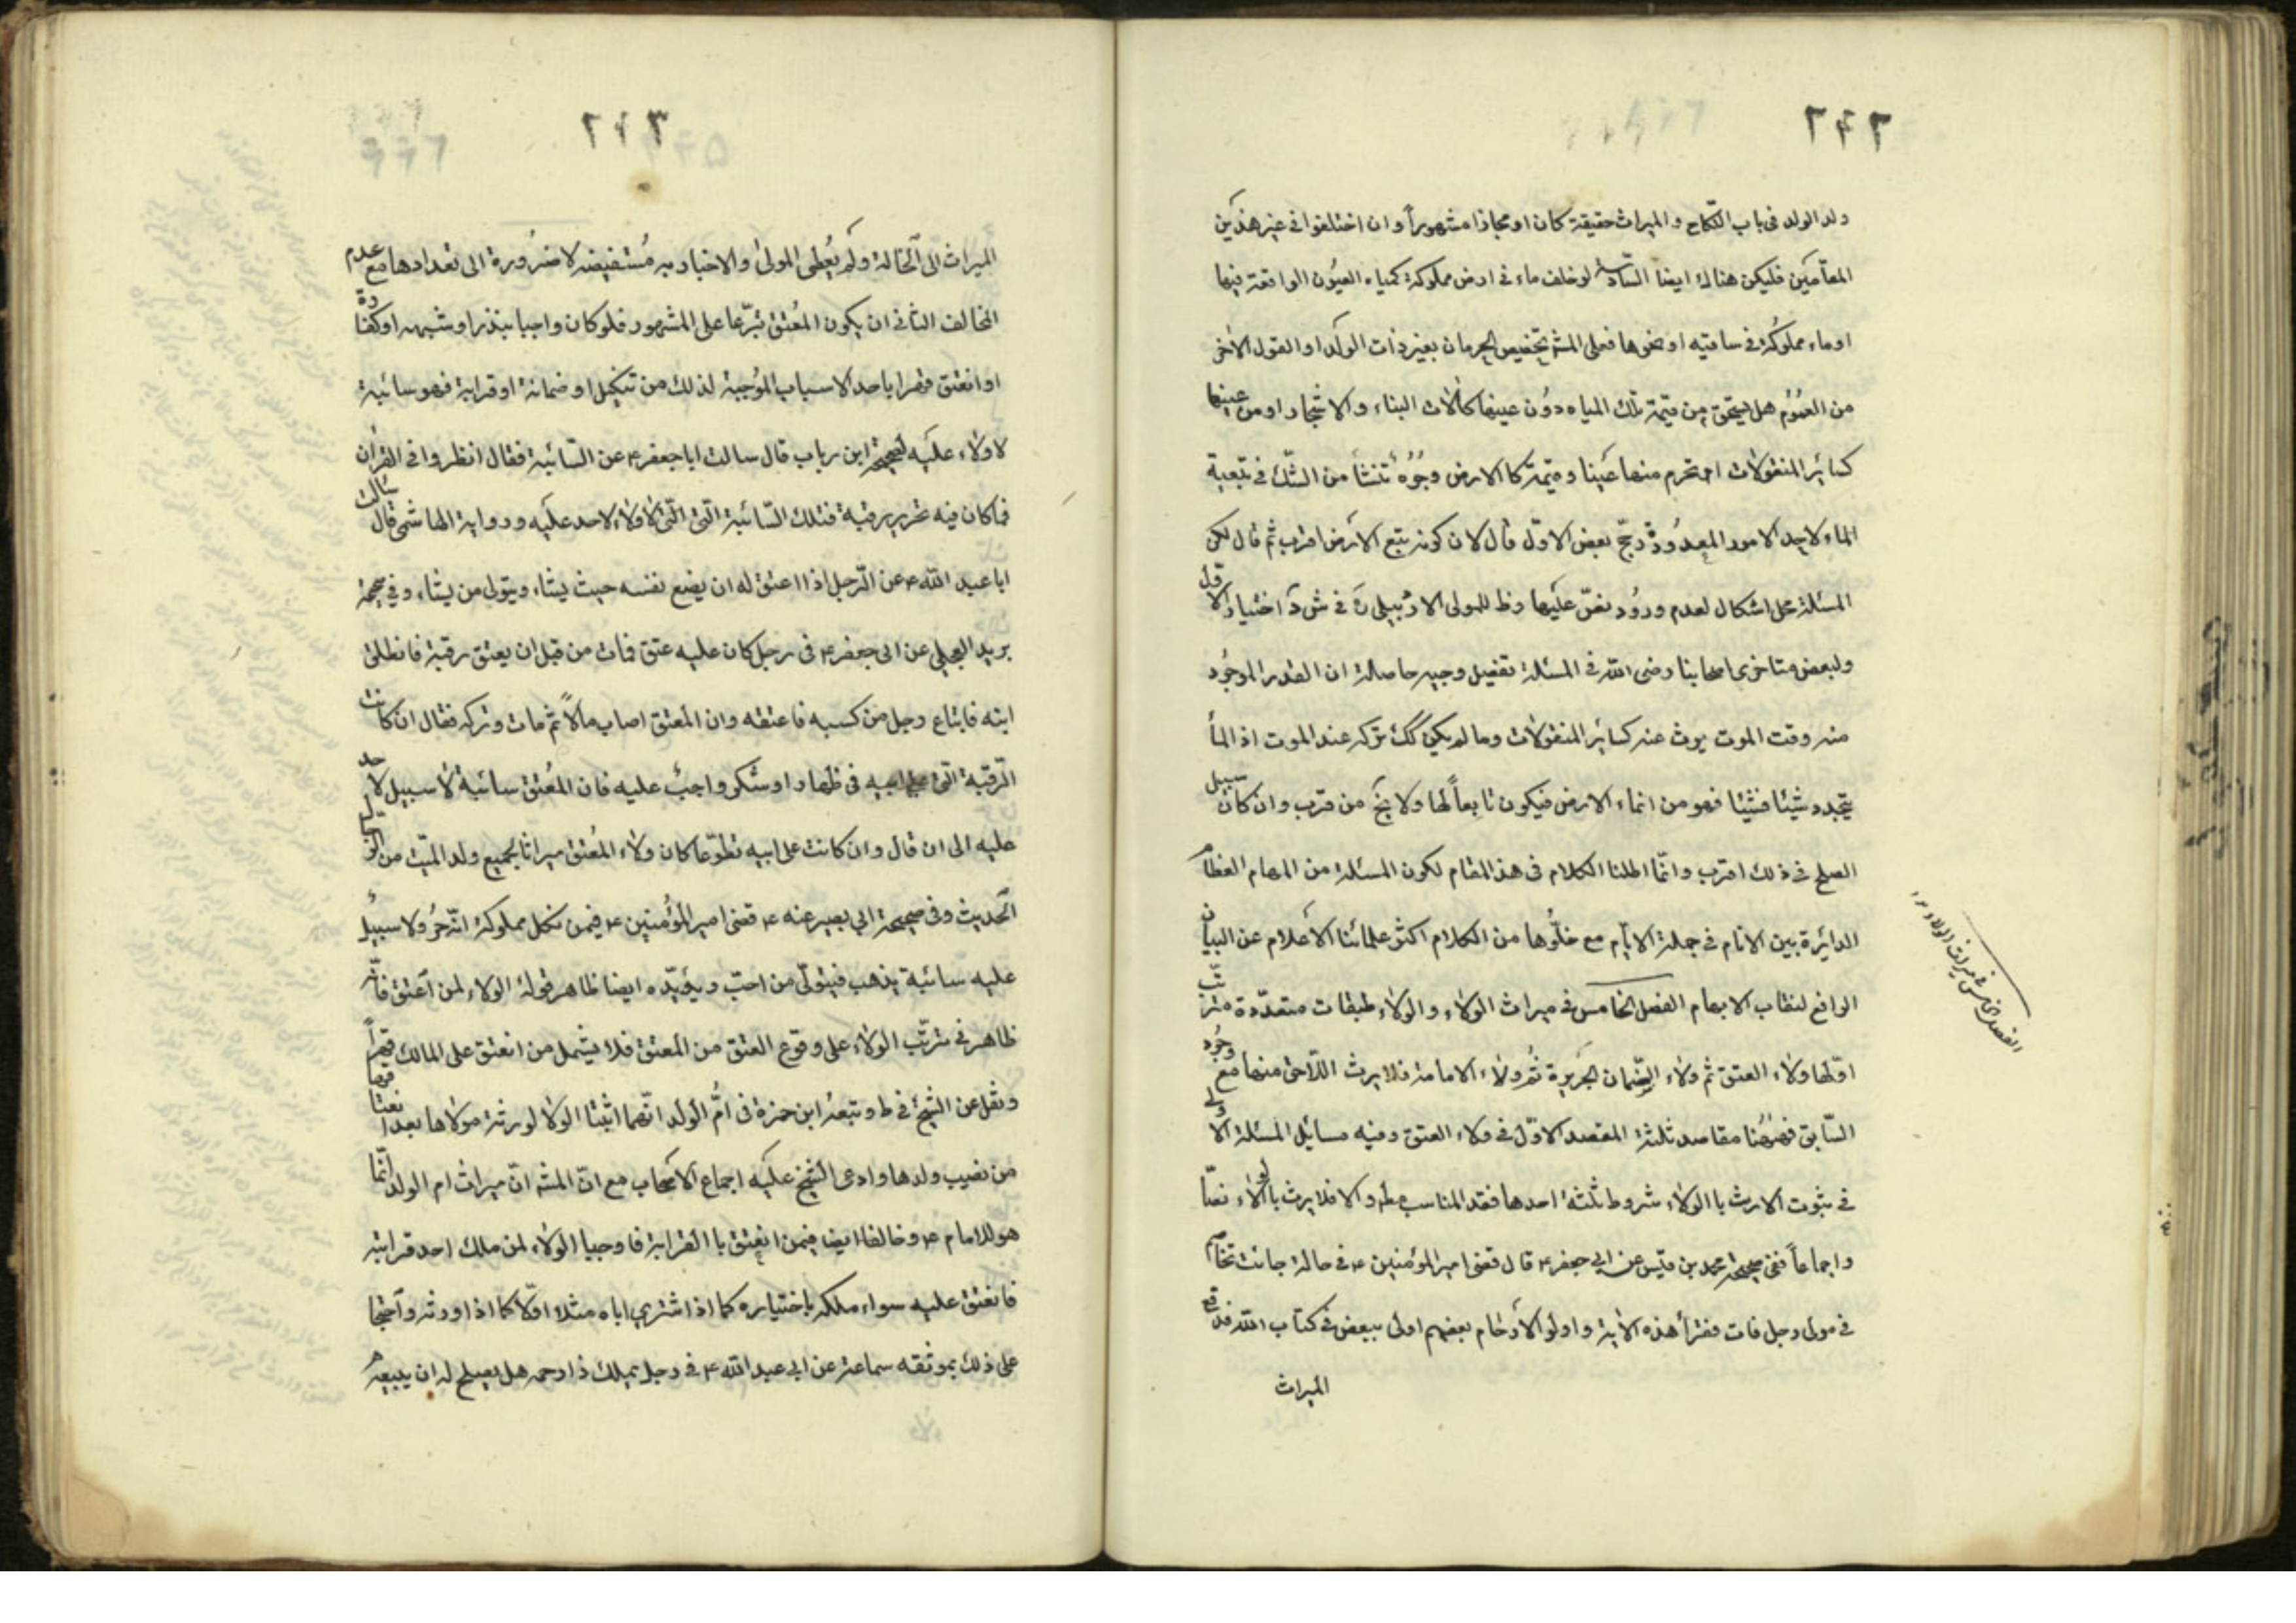 ٢٤٢
ولد الولد فى باب النكاح و الميراث حقيقة كان او مجازا مشهوراً و ان اختلفوا فى غير هذين
المقامين فليكن هناك ايضا السادسة لو خلف ماء فى ارض مملوكة كمياه العيون الواقعة فيها
او ماء مملوكة فى ساقية او نحوها فعلى المشهـ تخصيص الحرمان بغير ذات الولد او القول الاخر
من العموم هل يستحق من قيمة تلك المياه دون عينها كالات البناء و الاشجار او من عينها
كسائر المنقولات ام تحرم منها عينا و قيمة كالارض وجوه تنشا من الشك فى تبعية
الماء لاحد الامور المعدودة رجح بعض الاول قال لان كونه تبع الارض اقرب ثم قال لكن
المسئلة محل اشكال لعدم ورود نص عليها وظ للمولى الاردبيلى ره فى ش د اختيار الاول
ولبعض متاخرى اصحابنا رضى الله فى المسئلة تفصيل وجيه حاصله ان القدر الموجود
منه وقت الموت يورث عنه كسائر المنقولات وما لم يكن كك تركه عند الموت اذ الماء
يتجدد شيئا فشيئا فهو من انماء الارض فيكون تابعاً لها ولا يخ من قرب وان كان سبيل
الصلح فى ذلك اقرب وانما اطلنا الكلام فى هذ المقام لكون المسئلة من المهام العظام
الدائرة بين الانام فى جملة الايام مع خلوها من الكلام اكثر علمائنا الاعلام عن البيان
الرافع لنقاب الابهام الفصل الخامس فى ميراث الولاء و الولاء طبقات متعددة مترتبة
اولها ولاء العتق ثم ولاء الضمان الجريرة ثم ولاء الامامة فلا يرث اللاحق منها مع وجود
السابق فههنا مقاصد ثلثة المقصد الاول فى ولاء العتق وفيه مسائل المسئلة الاولى
فى ثبوت الارث با الولاء شروط ثلثة احدها فقد المناسب مط و الا فلا يرث با لولاء نصا
واجماعاً ففى صحيحة محمد بن قيس عن ابى جعفر ع قال قضى امير المؤمنين ع فى خالة جائت تخاصم
فى مولى رجل فات فقرأ هذه الاية و اولو الارحام بعضهم اولى ببعض فى كتاب الله فدفع
الميراث
الفصل الخامس فى ميراث الولاء
٢٤٣
الميراث الى الخالة ولم يعطى المولى والاخبار به مستفيضه لا ضرورة الى تعدادها مع عدم
المخالف الثانى ان يكون المعتق تبرعا على المشهور فلو كان واجبا بنذر او شبهه او كفارة
او انعتق قهرا باحد الاسباب الموجبة لذلك من تنكيل او ضمانة او قرابة فهو سائبة
لا ولاء عليه لصحيحة ابن رياب قال سالت ابا جعفر ع عن السائبة فقال انظروا فى القران
فما كان فيه تحرير رقبة فتلك السائبة التى التى لا ولاء لاحد عليه و رواية الهاشمى قال سالت
ابا عبد الله ع عن الرجل اذا اعتق له ان يضع نفسه حيث يشاء ويتولى من يشاء وفى صحيحة
بريد العجلى عن ابى جعفر ع فى رجل كان عليه عتق فمات من قبل ان يعتق رقبة فانطلق
ابنه فابتاع رجل من كسبه فاعتقه وان المعتق اصاب مالاً ثم مات وتركه فقال ان كانت
الرقبة التى على ابيه فى ظهار او شكر واجب عليه فان المعتق سائبة لا سبيل لاحد
عليه الى ان قال وان كانت على ابيه تطوعا كان ولاء المعتق ميراثا لجميع ولد الميت من الرجال
الحديث وفى صحيحة ابى بصير عنه ع قضى امير المؤمنين ع فيمن نكل مملوكه انه حر ولا سبيل
عليه سائبة يذهب فيتولى من احب ويؤيده ايضا ظاهر قوله الولاء لمن اعتق فانه
ظاهر فى ترتب الولاء على وقوع العتق من المعتق فلا يشمل من انعتق على المالك قهراً
ونقل عن الشيخ فى ط وتبعه ابن حمزة فى ام الولد انهما اثبتا الولا لورثة مولاها بعد انعتاقها
من نصيب ولدها وادعى الشيخ عليه اجماع الاصحاب مع ان المشهـ ان ميراث ام الولد انما
هو للامام ع وخالفا ايضا فيمن انعتق با القرابة فاوجبا الولاء لمن ملك احد قرابته
فانعتق عليه سواء ملكه باختياره كما اذا اشترى اباه مثلا اولا كما اذا اورثه واحتجا
على ذلك بموثقه سماعة عن ابى عبد الله ع فى رجل يملك ذا رحمه هل يصلح له ان يبيعه